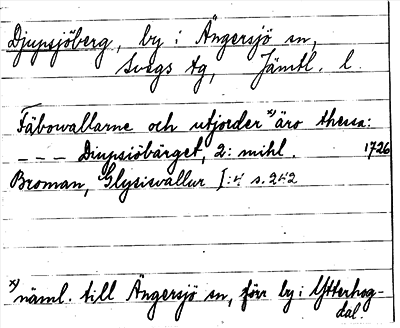 Djupsjöberg, by i Ängersjö sn,
Svegs tg, Jämtl. l.
Fäbowallarne och utjorder x) äro thessa:
--- Diupsiöbärget, 2: mihl. 1726
Broman, Glysisvallur I:4 s. 242
x) näml. till Ängersjö sn, förr by i Ytterhog-
dal.